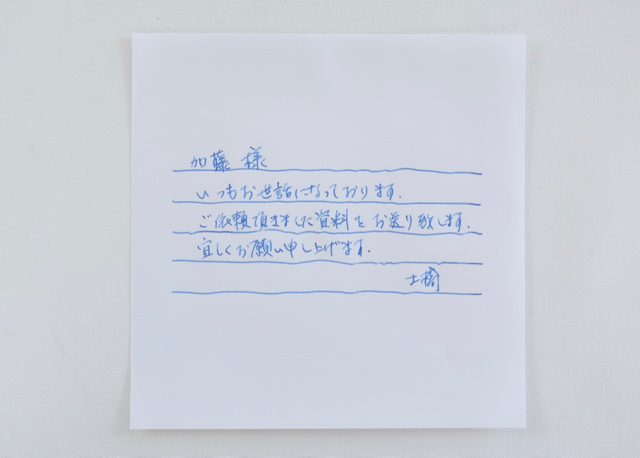 加藤 様
いつもお世話になっております.
ご依頼頂きました資料をお送り致します.
宜しくお願い申し上げます.
土橋